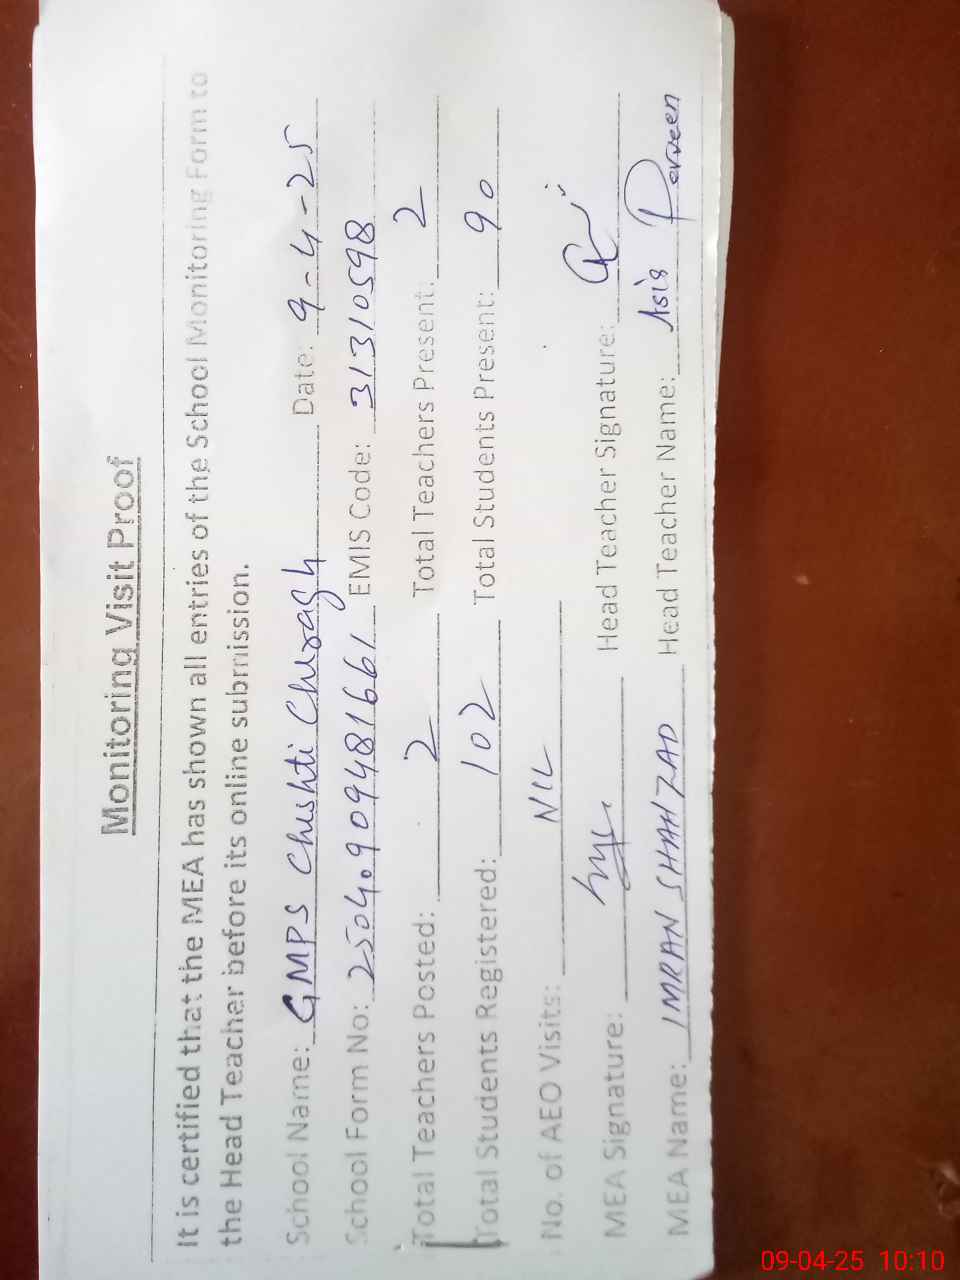 Monitoring Visit Proof
It is certified that the MEA has shown all entries of the School Monitoring Form to
the Head Teacher before its online submission.
School Name: GMPS Chishti Chragh Date: 9-4-25
School Form No: 25040909481661 EMIS Code: 31310598
Total Teachers Posted: 2 Total Teachers Present: 2
Total Students Registered: 102 Total Students Present: 90
No. of AEO Visits: NIL
MEA Signature: Head Teacher Signature:
MEA Name: IMRAN SHAHZAD Head Teacher Name: Asia Perveen
09-04-25 10:10